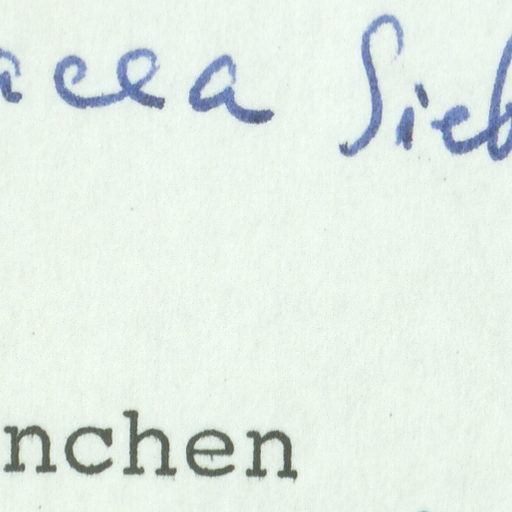 acea Sieb
nchen